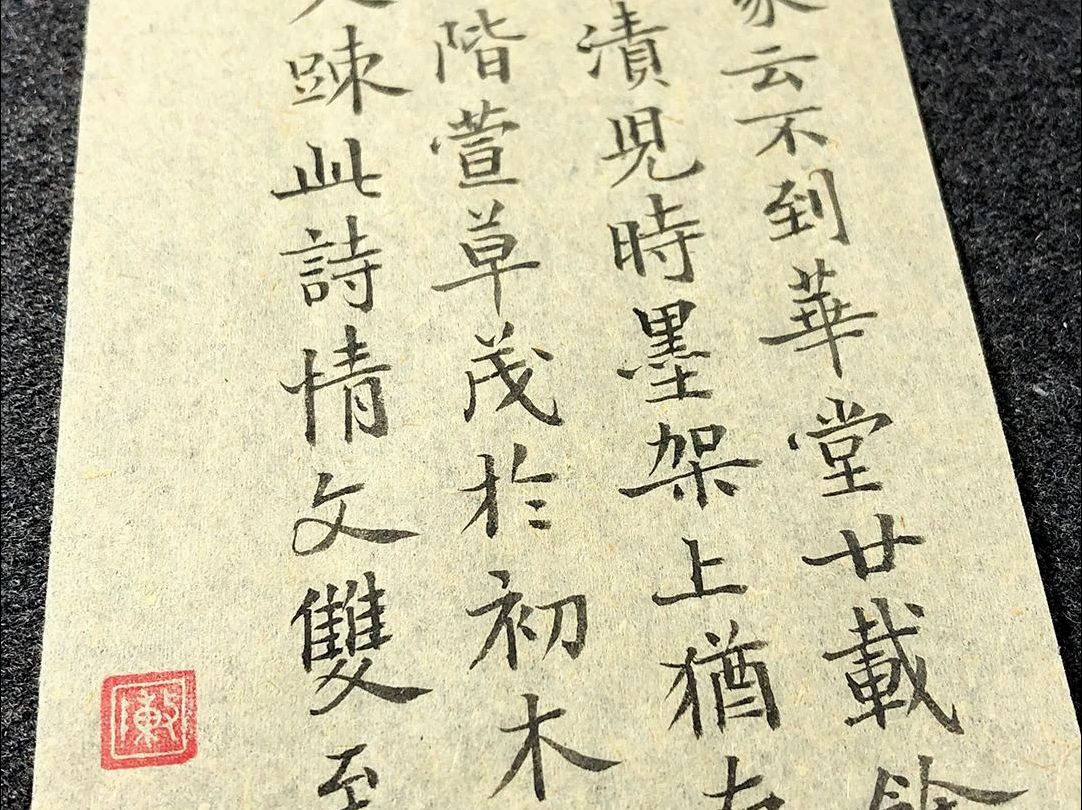 家云不到華堂廿載餘
漬児時墨架上猶存
階萱草茂於初木
疎此詩情文雙至